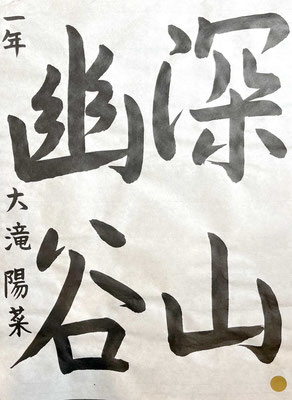 深山
幽谷
一年 大滝陽菜